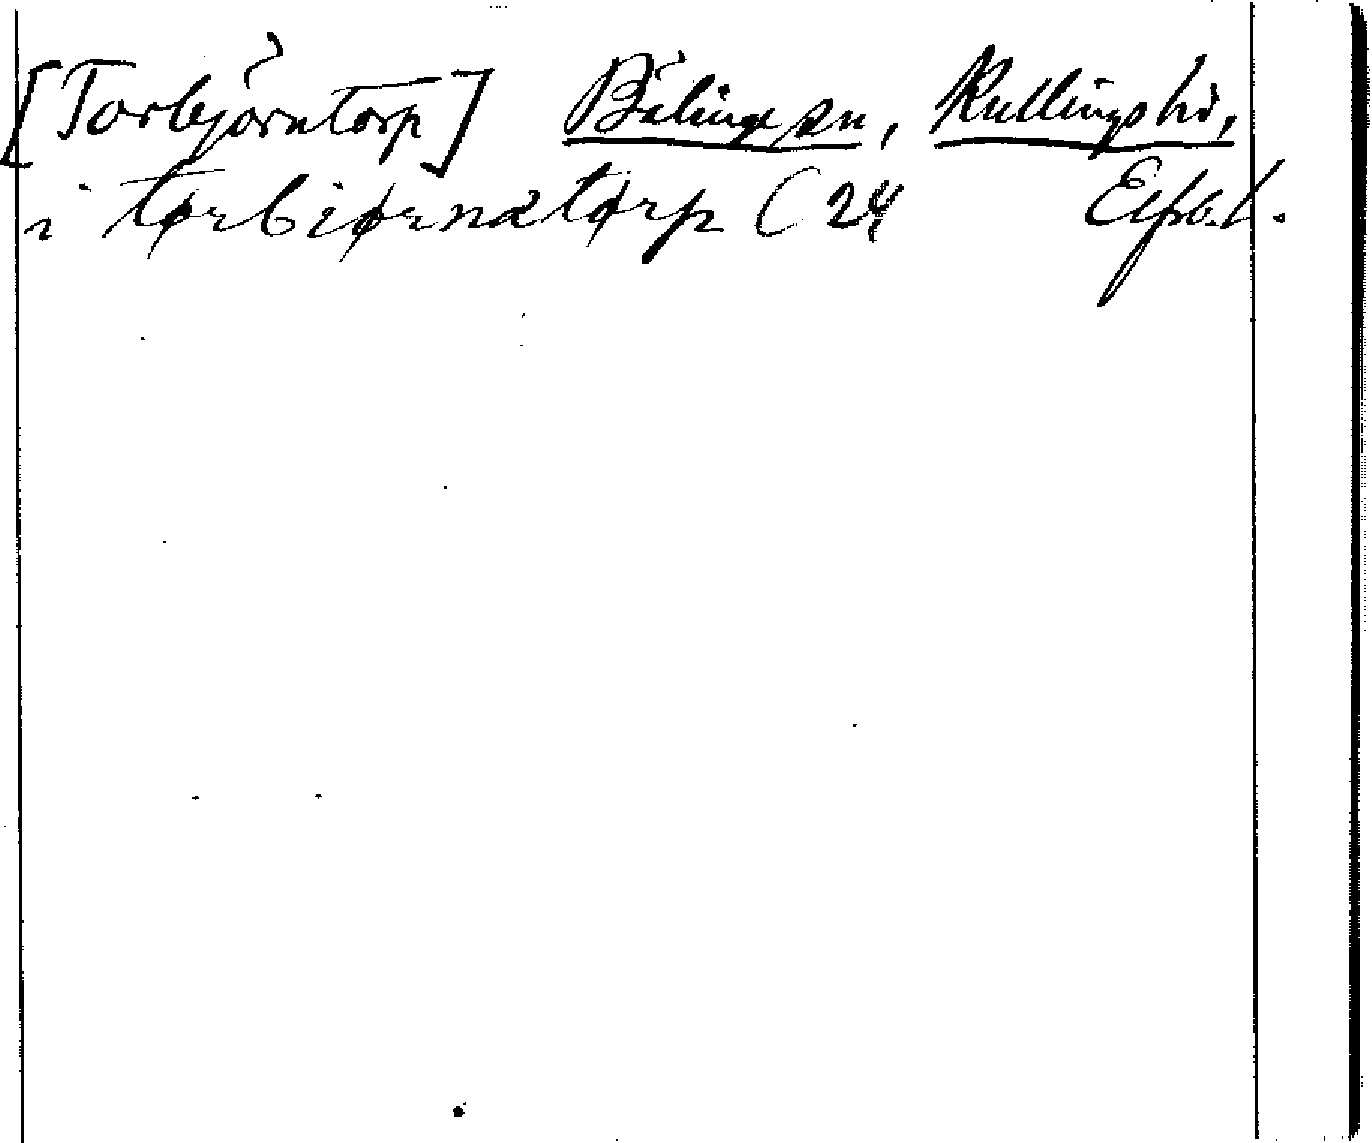 [Torbjörntorp] Bälinge sn, Kullings hd,
i tørbiørnatørp (24 Elfsb. l.